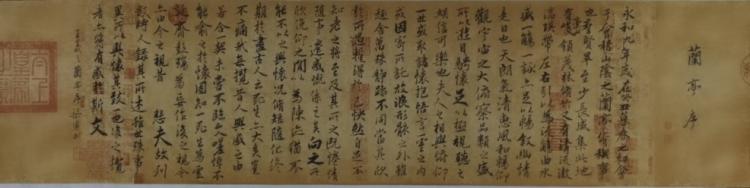 蘭亭序
永和九年歲在癸丑暮春之初會
于會稽山陰之蘭亭脩禊事
也群賢畢至少長咸集此地
有峻領茂林脩竹又有清流激
湍暎帶左右引以為流觴曲水
盛一觴一詠亦足以暢敘幽情
是日也天朗氣清惠風和暢仰
觀宇宙之大俯察品類之盛
所以遊目騁懷足以極視聽之
娛信可樂也夫人之相與俯仰
一世或取諸懷抱悟言一室之內
或因寄所託放浪形骸之外雖
趣舍萬殊靜躁不同當其欣
於所遇暫得於己快然自足不
知老之將至及其所之既惓情
隨事遷感慨係之矣向之所
欣俛仰之間以為陳迹猶不
能不以之興懷況脩短隨化終
期於盡古人云死生亦大矣豈
不痛哉每攬昔人興感之由
若合一契未嘗不臨文嗟悼不
能喻之於懷固知一死生為虛
誕齊彭殤為妄作後之視今
亦由今之視昔 悲夫故列
敘時人錄其所述雖世殊事
異所以興懷其致一也後之攬
者亦將有感於斯文